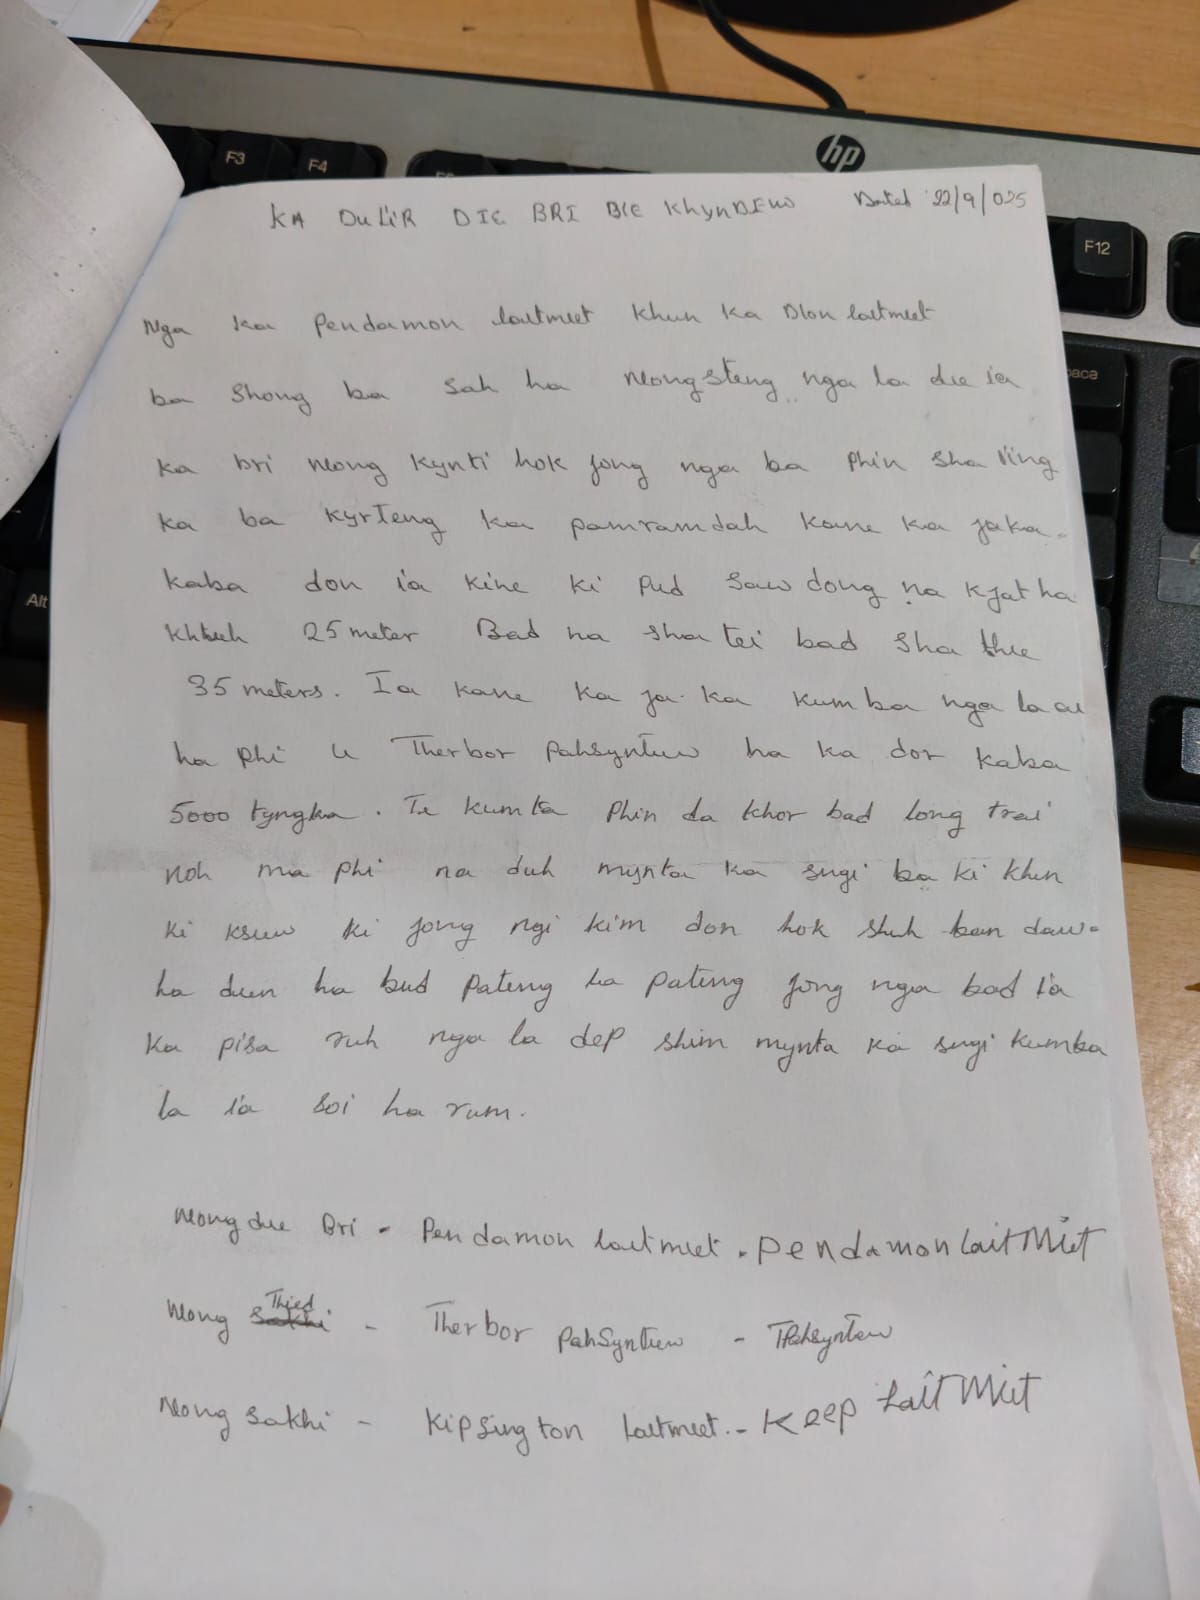 hp
F3 F4
F12
Alt
KA DULIR DIE BRI BIE KHYNDEW Dated 22/9/025
Nga ka Pendamon laitmiet khun ka Dlon laitmiet
ba shong ba sah ha Nongsteng nga la die ia
ka bri nong kynti hok jong nga ba phin sha iing
ka ba kyrteng ka pamramdah kane ka jaka
kaba don ia kine ki pud sawdong na kjat ha
khlieh 25 meter Bad na sha tei bad sha thie
35 meters. Ia kane ka ja-ka kumba nga la ai
ha phi u Therbor Pahsyntiew ha ka dor kaba
5000 tyngka. Te kumta phin da khor bad long trai
noh ma phi na duh mynta ka sngi ba ki khun
ki ksuw ki jong ngi kim don hok shuh ban daw-
ha duh ha bud pateng ha pateng jong nga bad ia
ka pisa ruh nga la dep shim mynta ka sngi kumba
la ia soi ha rum.
Nong die Bri - Pendamon laitmiet - Pendamon Lait Miet
Thied
Nong - Therbor Pahsyntiew - TPahsyntiew
Nong sakhi - Kipsington laitmiet - Keep Lait Miet